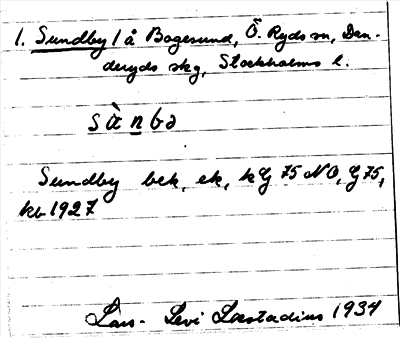 1. Sundby 1 å Bogesund, Ö. Ryds sn, Dan-
deryds skg, Stockholms l.
sànbə
Sundby bek, ek, kG 75 NO, G 75,
kb 1927
Lars-Levi Læstadius 1934